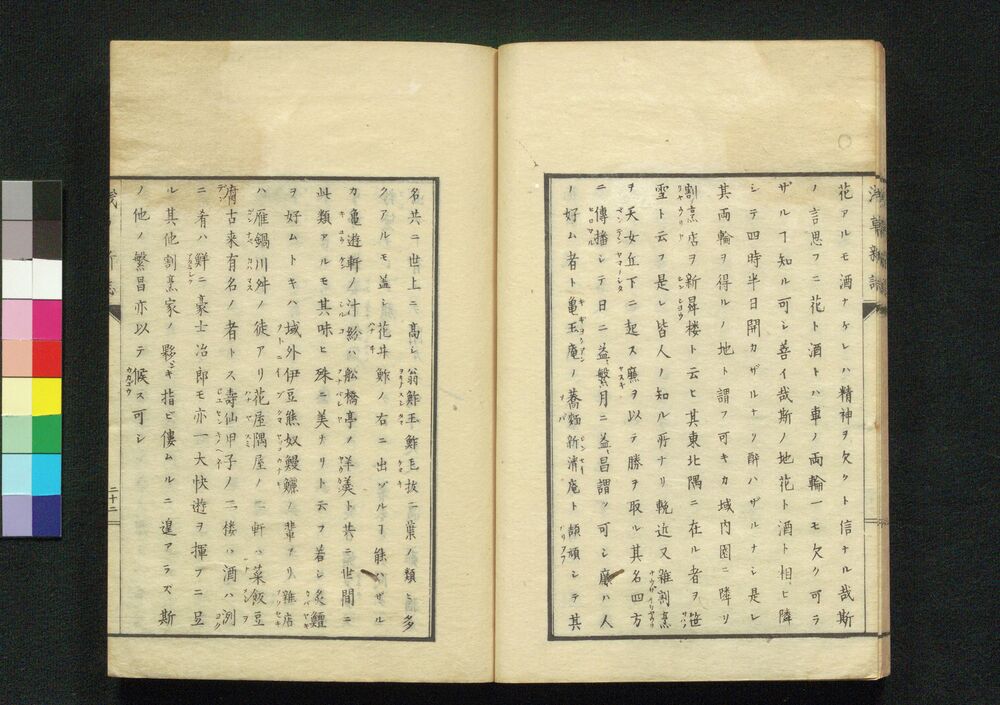 花アルモ酒ナケレハ精神ヲ欠クト信ナル哉斯
ノ言思フニ花ト酒トハ車ノ両輪一モ欠ク可ラ
ザルヿ知ル可シ善イ哉斯ノ地花ト酒ト相ヒ隣
シテ四時半日開カザルナリ酔ハザルナシ是レ
其両輪ヲ得ルノ地ト謂フ可キカ域内園ニ隣リ
割烹店ヲ新昇楼ト云ヒ其東北隅ニ在ル者ヲ笹
雪ト云フ是レ皆人ノ知ル所ナリ輓近又雑割烹
ヲ天女丘下ニ起ス廉ヲ以テ勝ヲ取ル其名四方
ニ傳播シテ日ニ益繁月ニ益昌謂ツ可シ廉ハ人
ノ好ム者ト亀玉庵ノ蕎麺新清庵ト頡頏シテ其
名共ニ世上ニ高シ翁鮓玉鮓毛抜二葉ノ類ヒ多
クアルモ益シ花井鮓ノ右ニ出ヅルヿ能ハザル
カ亀遊軒ノ汁粉ハ舩橋亭ノ羊羹ト共ニ世間ニ
此類アルモ其味ヒ殊ニ美ナリト云フ若シ炙鱣
ヲ好ムトキハ域外伊豆熊奴鰻鱺ノ輩アリ雑店
ハ雁鍋川舛ノ徒アリ花屋隅屋ノ二軒ハ菜飯豆
腐古来有名ノ者トス壽仙甲子ノ二楼ハ酒ハ冽
ニ肴ハ鮮ニ豪士冶郎モ亦一大快遊ヲ揮フニ足
ル其他割烹家ノ夥キ指ヒ僂ムルニ遑アラズ斯
ノ他ノ繁昌亦以テ候ス可シ
二十二